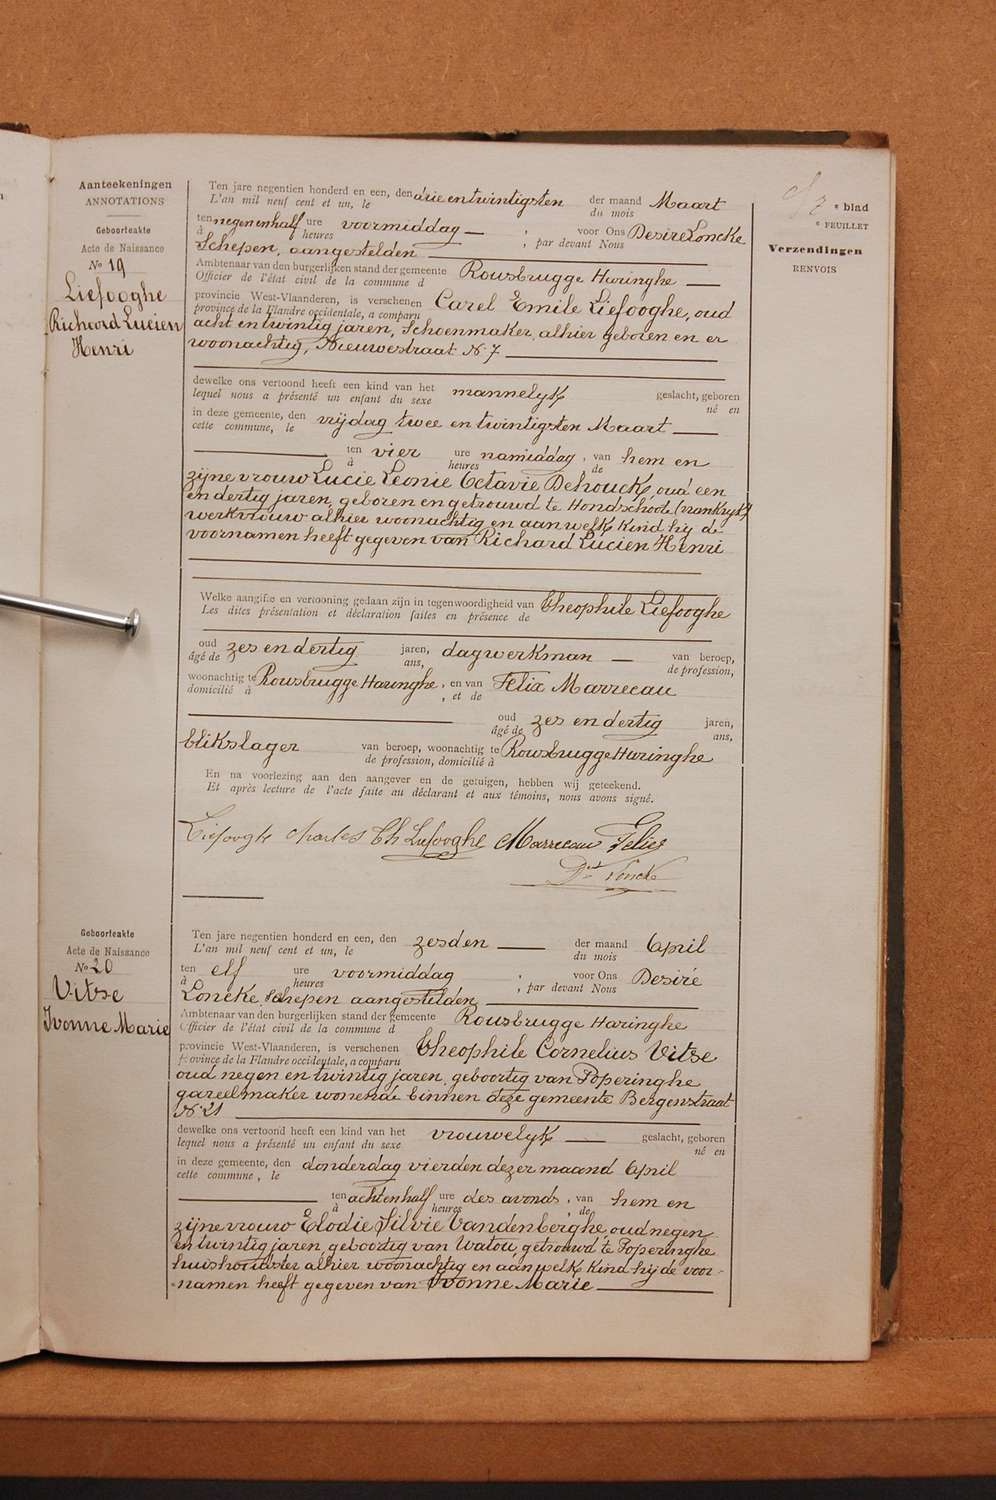 Aanteekeningen
ANNOTATIONS
Geboorteakte
Acte de Naissance
No 19
Liefooghe
Richard Lucien
Henri
e blad
e FEUILLET
Verzendingen
RENVOIS
Ten jare negentien honderd en een, den drie en twintigsten der maand Maart
L'an mil neuf cent et un, le du mois
ten negen en half ure voormiddag — ; voor Ons Desiré Loncke
à heures ; par devant Nous
Schepen, aangestelden
Ambtenaar van den burgerlijken stand der gemeente Rousbrugge Haringhe
Officier de l'état civil de la commune d
provincie West-Vlaanderen, is verschenen Carel Emile Liefooghe, oud
province de la Flandre occidentale, a comparu
acht en twintig jaren, schoenmaker, alhier geboren en er
woonachtig, Nieuwestraat N 7
dewelke ons vertoond heeft een kind van het mannelyk geslacht, geboren
lequel nous a présenté un enfant du sexe né en
in deze gemeente, den vrijdag twee en twintigsten Maart
cette commune, le
ten vier ure namiddag, van hem en
à heures de
zijne vrouw Lucie Leonie Octavie Dehouck, oud een
en dertig jaren, geboren en getrouwd te Hondschoote (vrankryk)
werkvrouw alhier woonachtig en aan welk kind hij de
voornamen heeft gegeven van Richard Lucien Henri
Welke aangifte en vertooning gedaan zijn in tegenwoordigheid van Theophile Liefooghe
Les dites présentation et déclaration faites en présence de
oud zes en dertig jaren, dagwerkman — van beroep,
âgé de ans, de profession,
woonachtig te Rousbrugge Haringhe, en van Felix Marrecau
domicilié à , et de
oud zes en dertig jaren,
âgé de ans,
blikslager van beroep, woonachtig te Rousbrugge Haringhe
de profession, domicilié à
En na voorlezing aan den aangever en de getuigen, hebben wij geteekend.
Et après lecture de l'acte faite au déclarant et aux témoins, nous avons signé.
Liefooghe Charles Th Liefooghe Marrecau Felix
Dré Loncke
Geboorteakte
Acte de Naissance
No 20
Vitse
Ivonne Marie
Ten jare negentien honderd en een, den zesden — der maand April
L'an mil neuf cent et un, le du mois
ten elf ure voormiddag ; voor Ons Desiré
à heures ; par devant Nous
Loncke Schepen aangestelden
Ambtenaar van den burgerlijken stand der gemeente Rousbrugge Haringhe
Officier de l'état civil de la commune d
provincie West-Vlaanderen, is verschenen Theophile Cornelius Vitse
province de la Flandre occidentale, a comparu
oud negen en twintig jaren, geboortig van Poperinghe
gareelmaker wonende binnen deze gemeente Bergenstraat
N 21
dewelke ons vertoond heeft een kind van het vrouwelyk — geslacht, geboren
lequel nous a présenté un enfant du sexe né en
in deze gemeente, den donderdag vierden dezer maand April
cette commune, le
ten achten half ure des avonds, van hem en
à heures de
zijne vrouw Elodie Silvie Vandenberghe oud negen
en twintig jaren, geboortig van Watou, getrouwd te Poperinghe
huishoudster alhier woonachtig en aan welk kind hij de voor-
namen heeft gegeven van Ivonne Marie